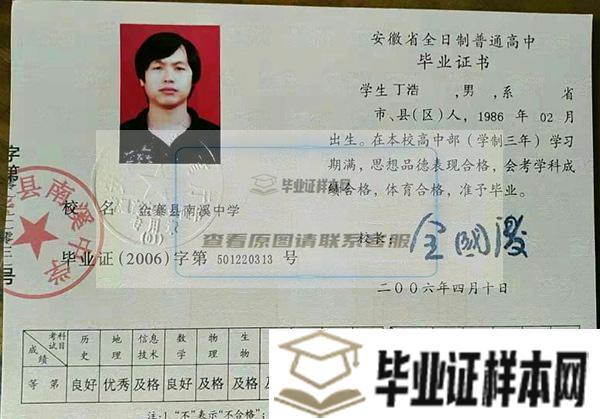 安徽省全日制普通高中
毕业证书
学生丁浩 ,男,系 省
市、县(区)人,1986 年 02月
出生。在本校高中部(学制三年)学习
期满,思想品德表现合格,会考学科成
绩合格,体育合格,准予毕业。
校 名 金寨县南溪中学
校长:
毕业证(2006)字第 501220313 号
二〇〇六年四月十日
县南溪中学
毕业证样本网
查看原图请联系客服
科目 考试 成绩 历史 地理 信息技术 数学 物理 生物
等 第 良好 优秀 及格 良好 及格 及格
注:1."不"表示"不合格";
毕业证样本网